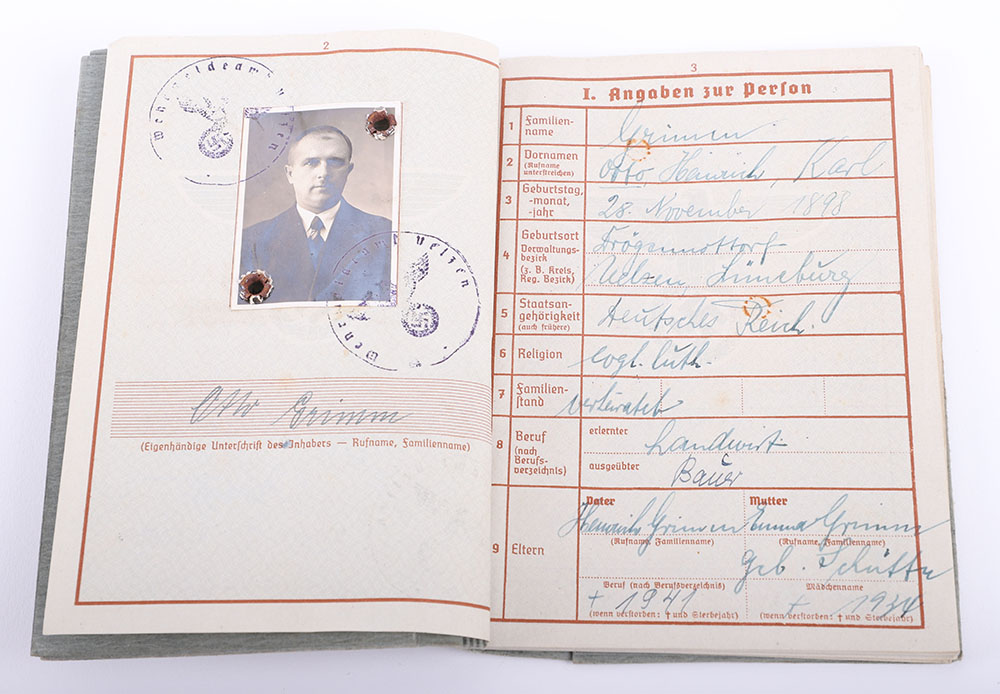 2
Wehrmeldeamt Uelzen
Wehrmeldeamt Uelzen
Otto Grimm
(Eigenhändige Unterschrift des Inhabers — Rufname, Familienname)
3
I. Angaben zur Person
1 Familien-
name
Grimm
2 Vornamen
(Rufname
unterstreichen)
Otto, Heinrich, Karl
3 Geburtstag,
-monat,
-jahr
28. November 1898
4 Geburtsort
Verwaltungs-
bezirk
(z. B. Kreis,
Reg. Bezirk)
Uelzen, Lüneburg
5 Staatsan-
gehörigkeit
(auch frühere)
Deutsches Reich.
6 Religion
evgl. luth.
7 Familien-
stand
verheiratet
8 Beruf
(nach
Berufs-
verzeichnis)
erlernter
Landwirt
ausgeübter
Bauer
9 Eltern
Vater
Mutter
Heinrich Grimm
Emma Grimm
(Rufname, Familienname)
(Rufname, Familienname)
geb. Schütte
Beruf (nach Berufsverzeichnis)
Mädchenname
† 1941
† 1934
(wenn verstorben: † und Sterbejahr)
(wenn verstorben: † und Sterbejahr)